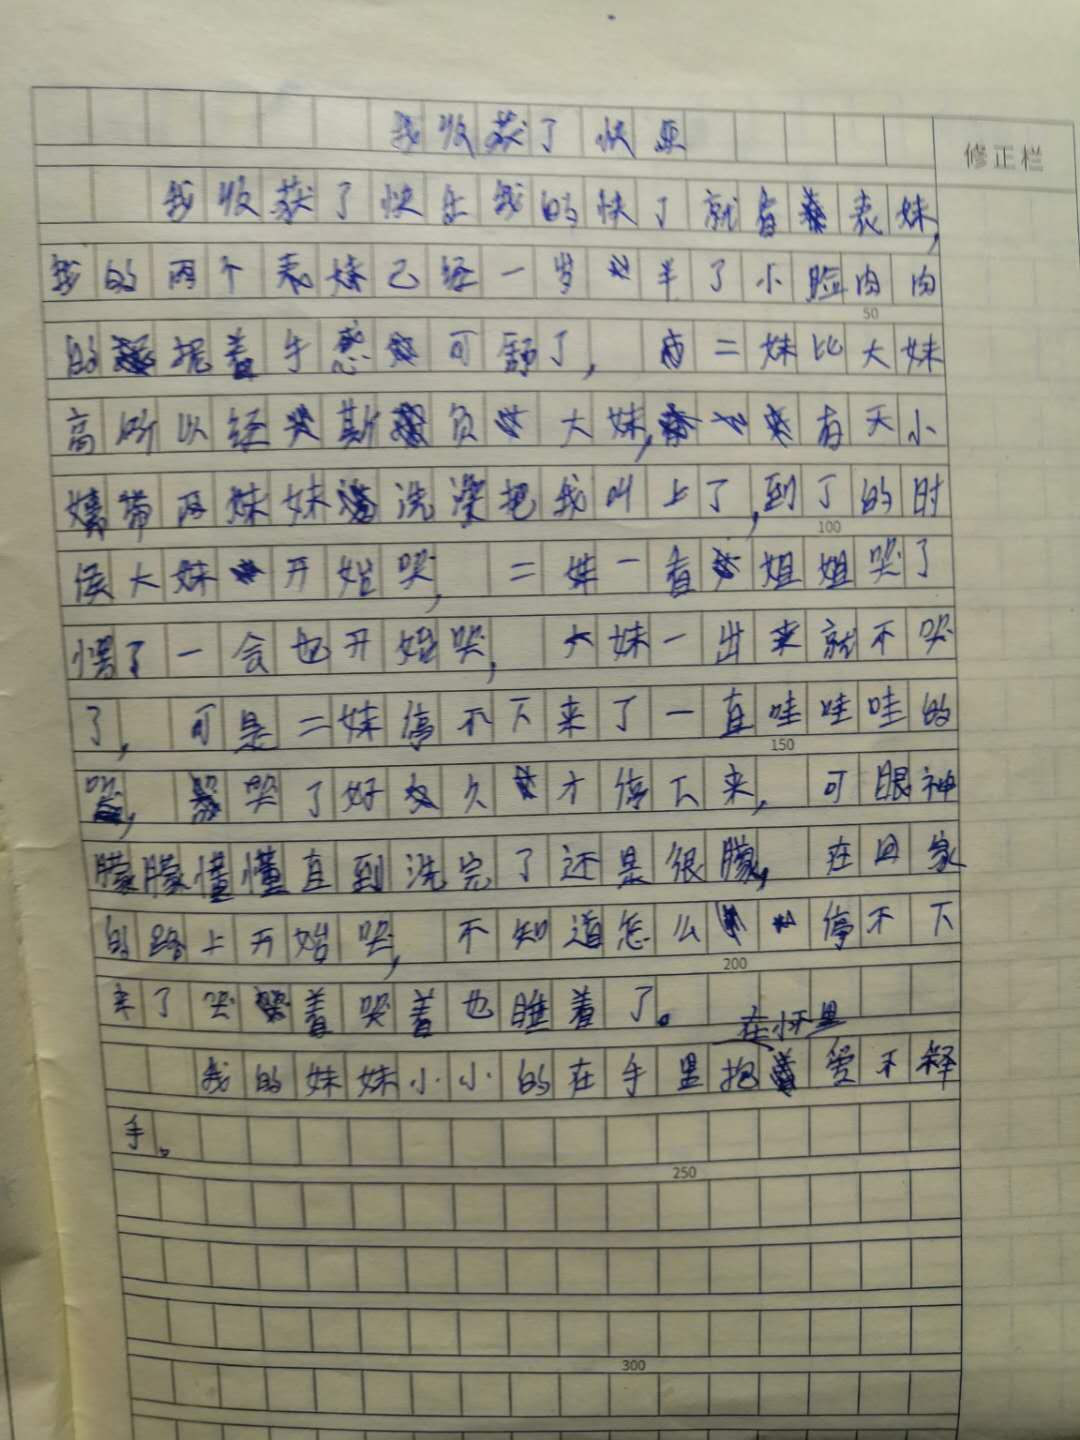 我收获了快乐
修正栏
我收获了快乐我的快了就有表妹,
我的两个表妹已经一岁半了小脸肉肉
50
的捏着手感可舒了, 二妹比大妹
高所以经斯负大妹,有天小
姨带两妹妹洗澡把我叫上了,到了的时
100
侯大妹开始哭, 二妹一看姐姐哭了
愣了一会也开始哭, 大妹一出来就不哭
了, 可是二妹停不下来了一直哇哇哇的
150
哭, 哭了好久才停下来, 可眼神
朦朦懂懂直到洗完了还是很朦, 在回家
的路上开始哭, 不知道怎么停不下
200
来了哭着哭着也睡着了。
在怀里
我的妹妹小小的在手里抱着爱不释
手。
250
300